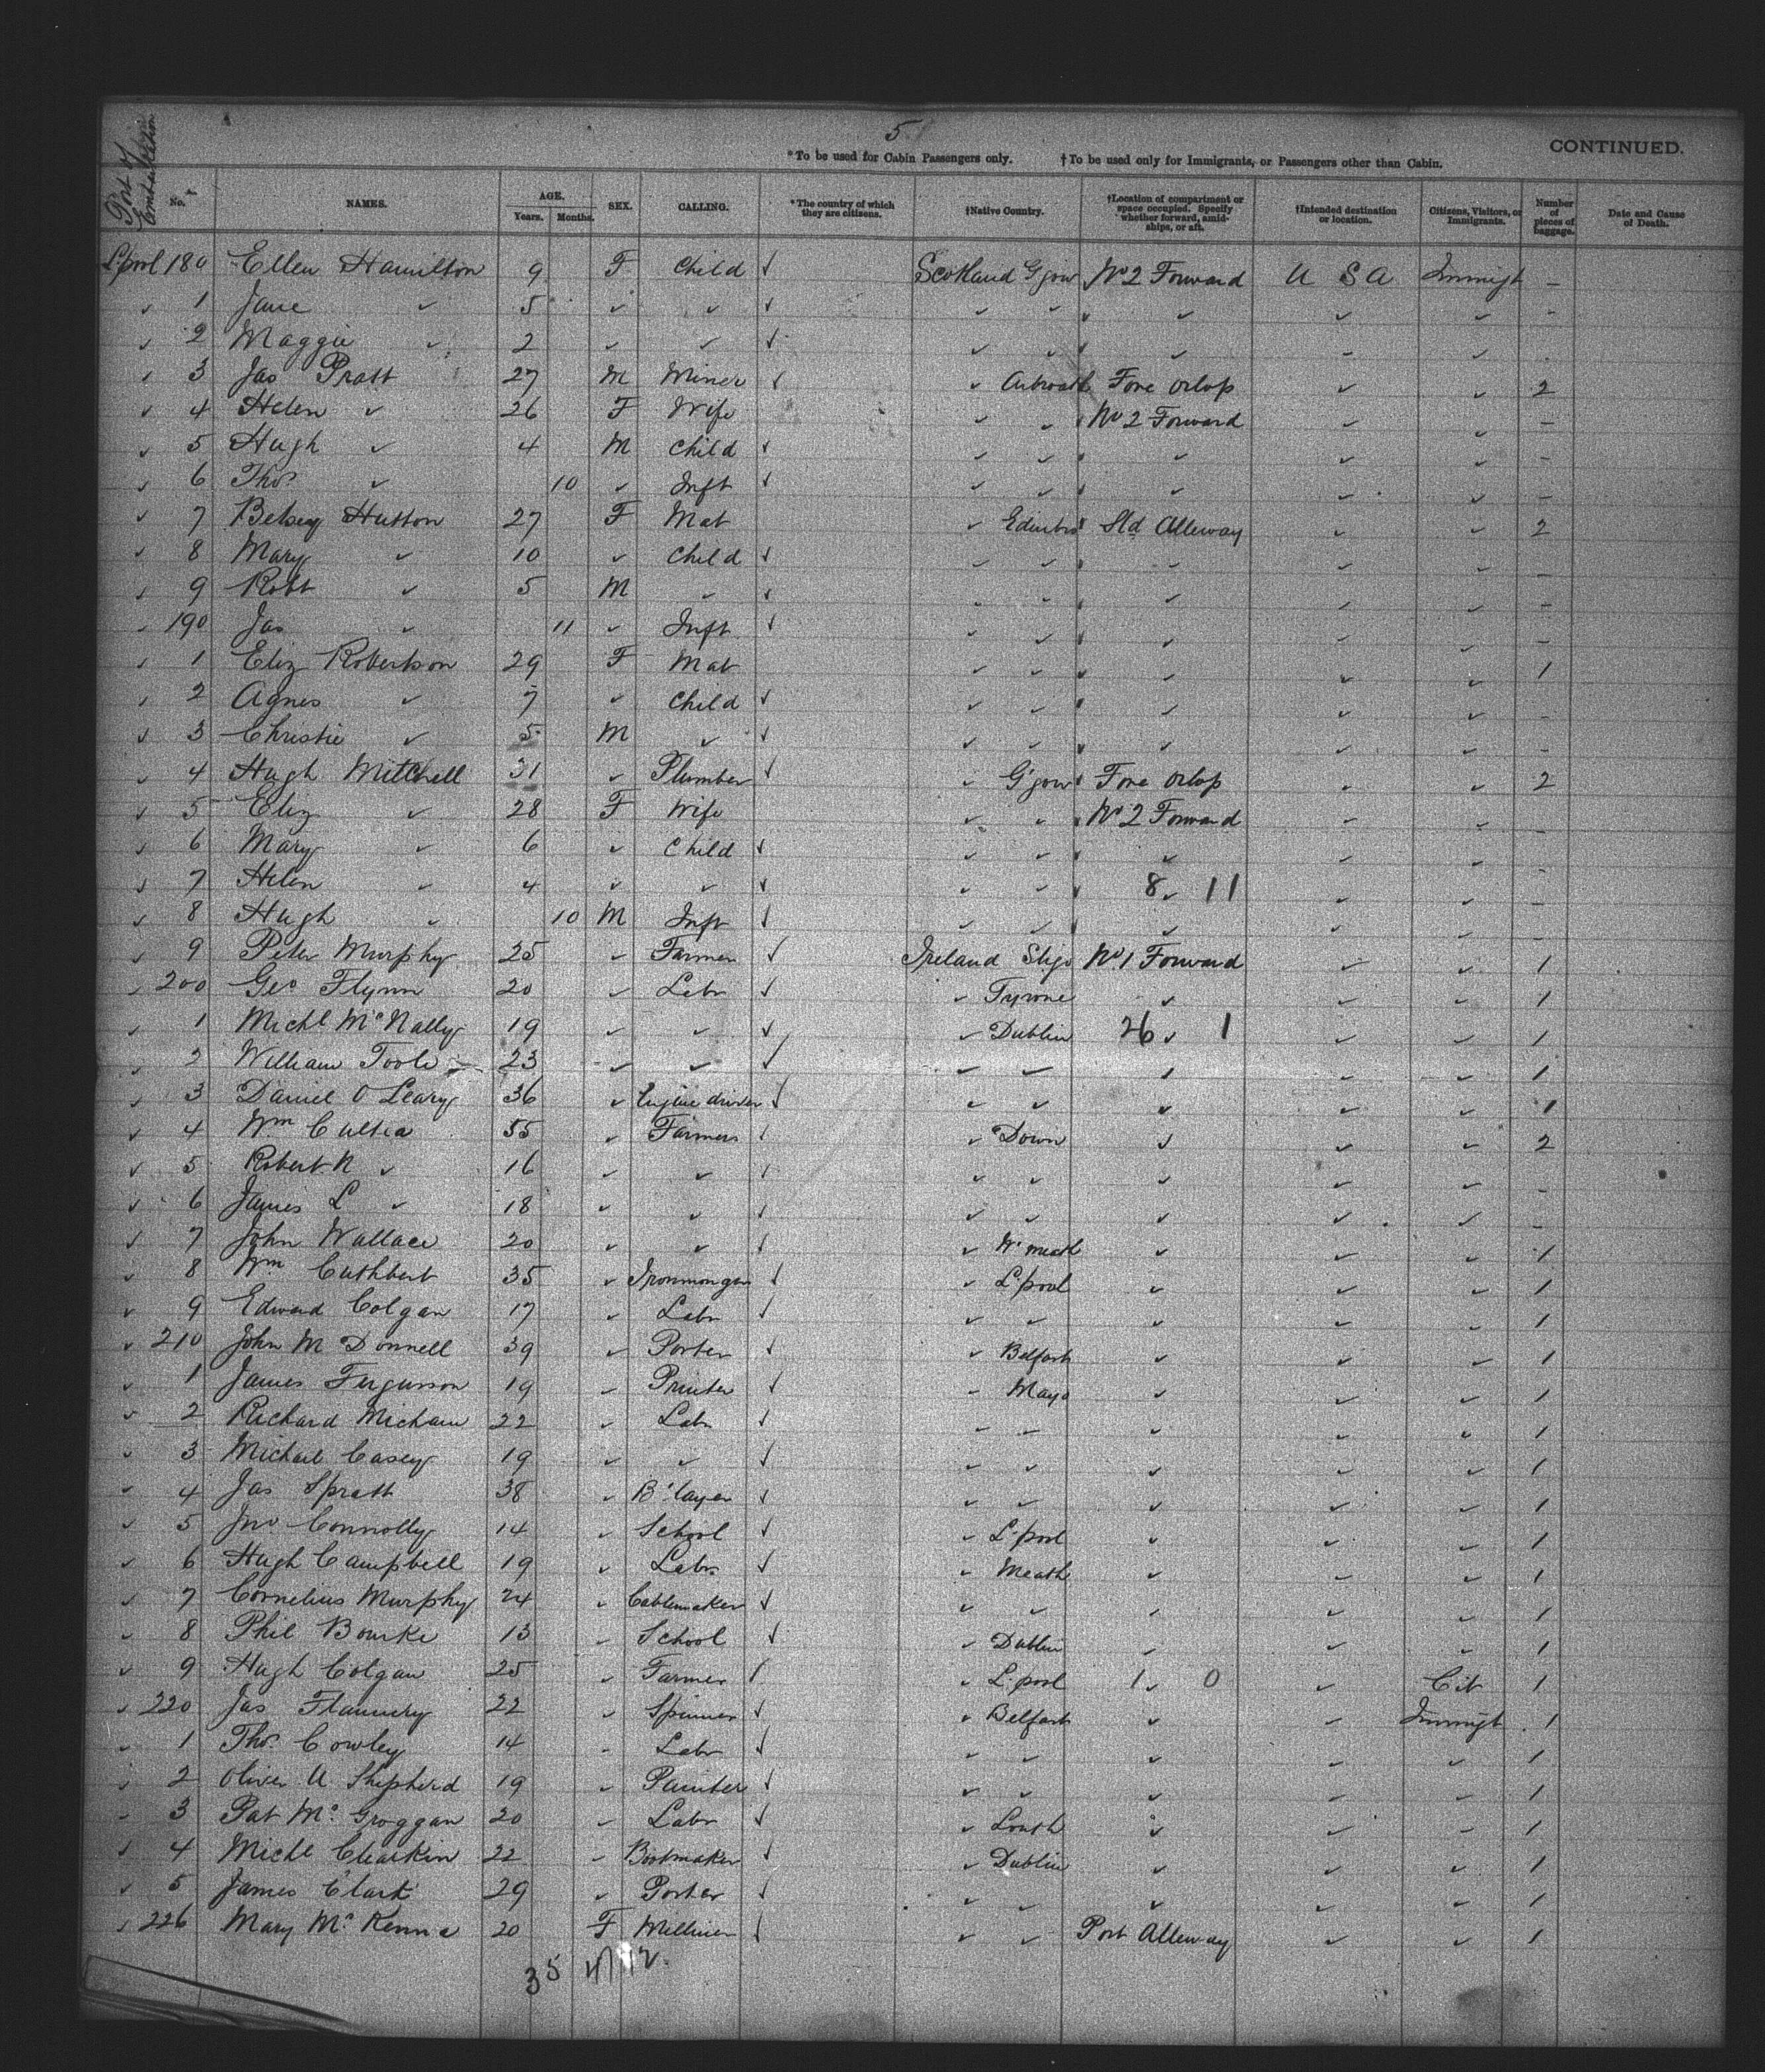 5
CONTINUED.
*To be used for Cabin Passengers only. †To be used only for Immigrants, or Passengers other than Cabin.
Port of Embarkation No. NAMES. AGE. Years. Months. SEX. CALLING. *The country of which they are citizens. †Native Country. †Location of compartment or space occupied. Specify whether forward, amidships, or aft. †Intended destination or location. Citizens, Visitors, or Immigrants. Number of pieces of baggage. Date and Cause of Death.
L'pool 180 Ellen Hamilton 9 F Child ✓ Scotland G'gow No 2 Forward U S A Immigt -
✓ 1 Jane ✓ 5 ✓ ✓ ✓ ✓ ✓ ✓ ✓ ✓ -
✓ 2 Maggie ✓ 2 ✓ ✓ ✓ ✓ ✓ ✓ ✓ ✓ -
✓ 3 Jas Pratt 27 M Miner ✓ ✓ Arbroath Fore Orlop ✓ ✓ 2
✓ 4 Helen ✓ 26 F Wife ✓ ✓ No 2 Forward ✓ ✓ -
✓ 5 Hugh ✓ 4 M Child ✓ ✓ ✓ ✓ ✓ ✓ -
✓ 6 Thos ✓ 10 ✓ Inft ✓ ✓ ✓ ✓ ✓ ✓ -
✓ 7 Betsey Hutton 27 F Mat ✓ Edinbro Std Alleway ✓ ✓ 2
✓ 8 Mary ✓ 10 ✓ Child ✓ ✓ ✓ ✓ ✓ ✓ -
✓ 9 Robt ✓ 5 M ✓ ✓ ✓ ✓ ✓ ✓ ✓ -
✓ 190 Jas ✓ 11 ✓ Inft ✓ ✓ ✓ ✓ ✓ ✓ -
✓ 1 Eliz Robertson 29 F Mat ✓ ✓ ✓ ✓ ✓ 1
✓ 2 Agnes ✓ 7 ✓ Child ✓ ✓ ✓ ✓ ✓ ✓ -
✓ 3 Christie ✓ 5 M ✓ ✓ ✓ ✓ ✓ ✓ ✓ -
✓ 4 Hugh Mitchell 31 ✓ Plumber ✓ ✓ G'gow Fore Orlop ✓ ✓ 2
✓ 5 Eliz ✓ 28 F Wife ✓ ✓ No 2 Forward ✓ ✓ -
✓ 6 Mary ✓ 6 ✓ Child ✓ ✓ ✓ ✓ ✓ ✓ -
✓ 7 Helen ✓ 4 ✓ ✓ ✓ ✓ ✓ 8 ✓ 11 ✓ ✓ -
✓ 8 Hugh ✓ 10 M Inft ✓ ✓ ✓ ✓ ✓ ✓ -
✓ 9 Peter Murphy 25 ✓ Farmer ✓ Ireland Sligo No 1 Forward ✓ ✓ 1
✓ 200 Geo Flynn 20 ✓ Labr ✓ ✓ Tyrone ✓ ✓ ✓ 1
✓ 1 Michl McNally 19 ✓ ✓ ✓ ✓ Dublin 26 ✓ 1 ✓ ✓ 1
✓ 2 William Toole 23 ✓ ✓ ✓ ✓ ✓ ✓ ✓ ✓ 1
✓ 3 Daniel O Leary 36 ✓ Engine driver ✓ ✓ ✓ ✓ ✓ ✓ 1
✓ 4 Wm Cultra 55 ✓ Farmers ✓ ✓ Down ✓ ✓ ✓ 2
✓ 5 Robert N ✓ 16 ✓ ✓ ✓ ✓ ✓ ✓ ✓ ✓ -
✓ 6 James L ✓ 18 ✓ ✓ ✓ ✓ ✓ ✓ ✓ ✓ -
✓ 7 John Wallace 20 ✓ ✓ ✓ ✓ W'meath ✓ ✓ ✓ 1
✓ 8 Wm Cuthbert 35 ✓ Ironmonger ✓ ✓ L'pool ✓ ✓ ✓ 1
✓ 9 Edward Colgan 17 ✓ Labr ✓ ✓ ✓ ✓ ✓ ✓ 1
✓ 210 John M Donnell 39 ✓ Porter ✓ ✓ Belfast ✓ ✓ ✓ 1
✓ 1 James Fergusson 19 ✓ Printer ✓ ✓ Mayo ✓ ✓ ✓ 1
✓ 2 Richard Micham 22 ✓ Labr ✓ ✓ ✓ ✓ ✓ ✓ 1
✓ 3 Michael Casey 19 ✓ ✓ ✓ ✓ ✓ ✓ ✓ ✓ 1
✓ 4 Jas Spratt 38 ✓ B'layer ✓ ✓ ✓ ✓ ✓ ✓ 1
✓ 5 Jno Connolly 14 ✓ School ✓ ✓ L'pool ✓ ✓ ✓ 1
✓ 6 Hugh Campbell 19 ✓ Labr ✓ ✓ Meath ✓ ✓ ✓ 1
✓ 7 Cornelius Murphy 24 ✓ Cablemaker ✓ ✓ ✓ ✓ ✓ ✓ 1
✓ 8 Phil Bourke 13 ✓ School ✓ ✓ Dublin ✓ ✓ ✓ 1
✓ 9 Hugh Colgan 25 ✓ Farmer ✓ ✓ L'pool 1 ✓ 0 ✓ Cit 1
✓ 220 Jas Flannery 22 ✓ Spinner ✓ ✓ Belfast ✓ ✓ Immigt 1
✓ 1 Thos Cowley 14 ✓ Labr ✓ ✓ ✓ ✓ ✓ ✓ 1
✓ 2 Oliver U Shepherd 19 ✓ Painter ✓ ✓ ✓ ✓ ✓ ✓ 1
✓ 3 Pat Mc Groggan 20 ✓ Labr ✓ ✓ Louth ✓ ✓ ✓ 1
✓ 4 Michl Clearkin 22 ✓ Bootmaker ✓ ✓ Dublin ✓ ✓ ✓ 1
✓ 5 James Clark 29 ✓ Porter ✓ ✓ ✓ ✓ ✓ ✓ 1
✓ 226 Mary Mc Kenna 20 F Milliner ✓ ✓ ✓ Port Alleway ✓ ✓ 1
35